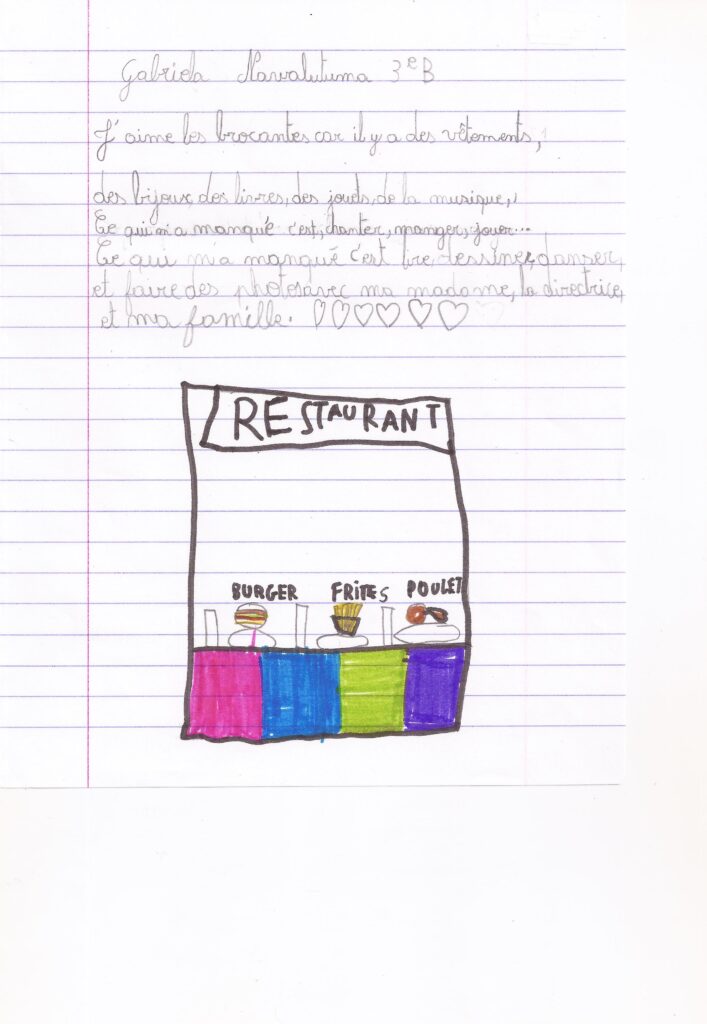 Gabriela Navalutuma 3e B
J'aime les brocantes car il y a des vêtements,
des bijoux, des livres, des jouets, de la musique,
Ce qui m'a manqué c'est, chanter, manger, jouer...
Ce qui m'a manqué c'est lire, dessiner, danser,
et faire des photos avec ma madame, la directrice,
et ma famille. ♡♡♡♡♡♡
RESTAURANT
BURGER FRITES POULET